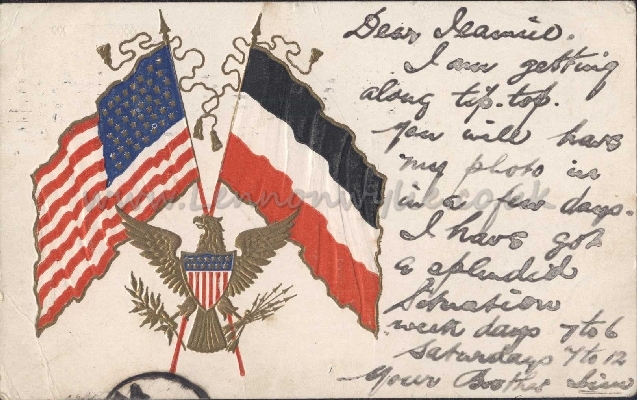 Dear Jeannie.
I am getting
along tip. top.
you will have
my photo in
in a few days.
I have got
a splendid
Situation
week days 7 to 6
Saturdays 7 to 12
Your Brother Jim
www.LennonWylie.co.uk